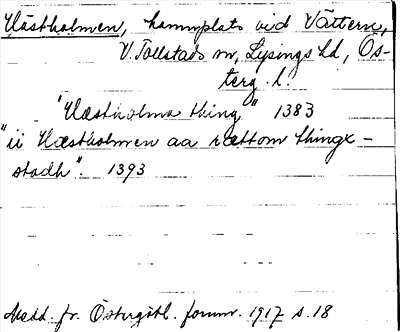 Hästholmen, hamnplats vid Vättern,
V. Tollstads sn, Lysings hd, Ös-
terg. l.
"Hæstholms thing" 1383
"ii Hæstholmen aa rættom thingx-
stadh". 1393
Medd. fr. Östergötl. fornm. 1917 s. 18